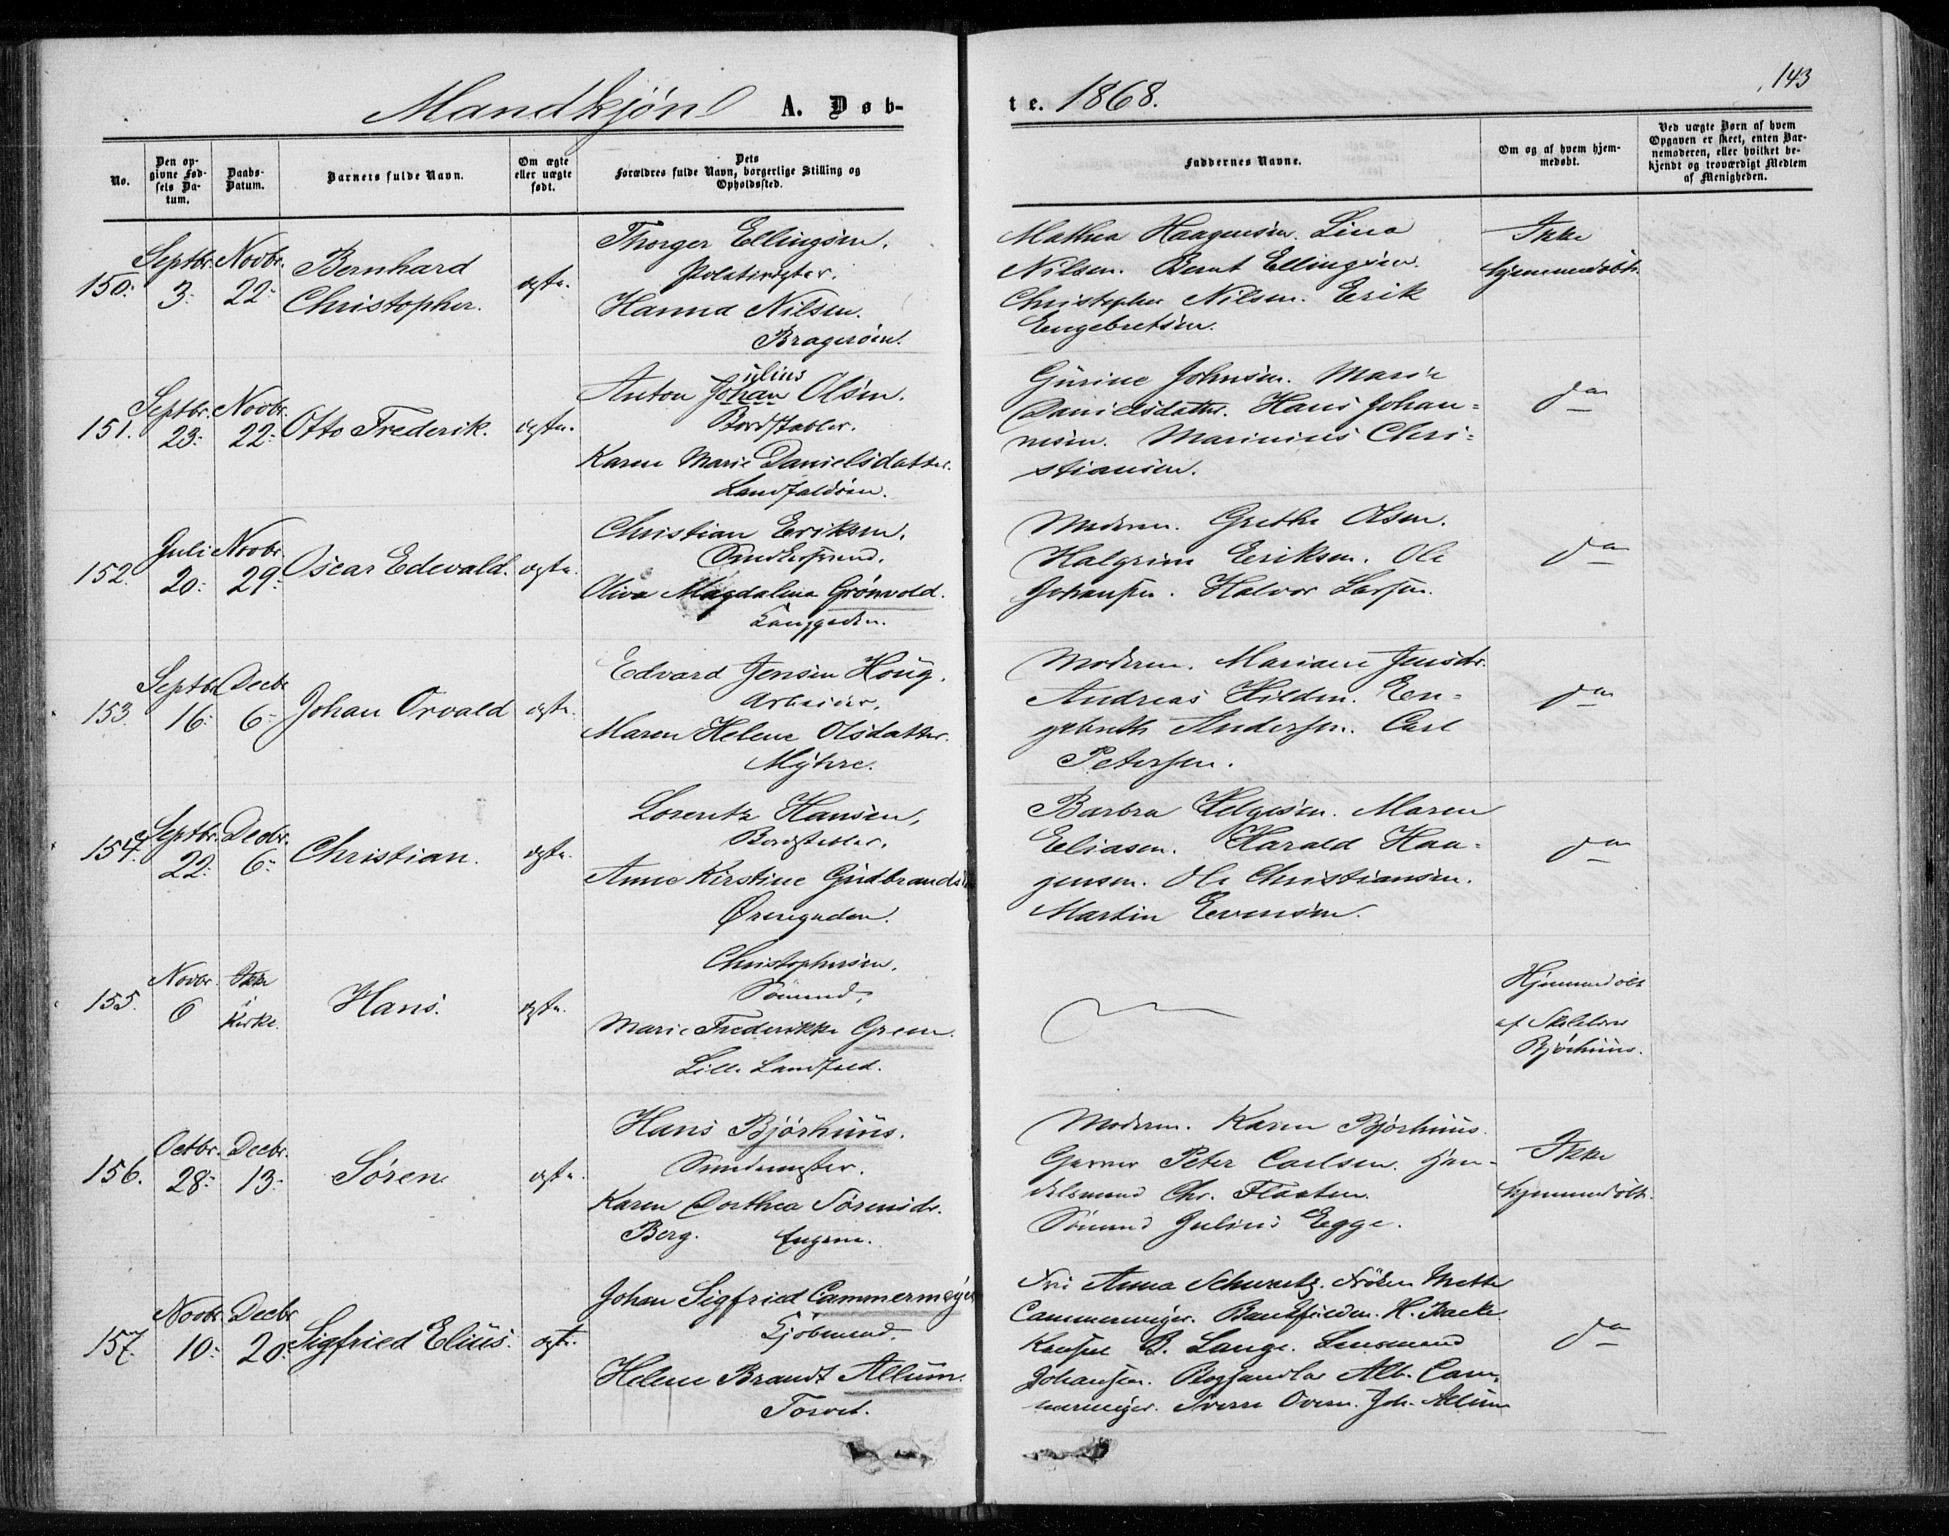 Mandkjøn A. Døb-
te. 1868.
143
No.
Den op-
givne Fød-
sels Da-
tum.
Daabs-
Datum.
Barnets fulde Navn.
Om ægte
eller uægte
født.
Dets
Forældres fulde Navn, borgerlige Stilling og
Opholdssted.
Faddernes Navne.
Om og af hvem hjem-
medøbt.
Ved uægte Børn af hvem
Opgaven er skeet, enten Bar-
nemoderen, eller hvilket be-
kjendt og troværdigt Medlem
af Menigheden.
150.
Septbr.
3.
Novbr.
22.
Bernhard
Christopher.
ægte.
Thorger Ellingsen.
Hanna Nilsen.
Bragerøen.
Mathea Haagensen. Lina
Nilsen. Bernt Ellingsen.
Christopher Nilsen. Erik
Engebretsen.
Ikke
hjemmedøbt.
151.
Septbr.
23.
Novbr.
22.
Otto Frederik.
ægte.
ulius
Anton Johan Olsen.
Bordstabler.
Karen Marie Danielsdatter.
Landfaldøen.
Gurine Johnsen. Marie
Danielsdatter. Hans Johan-
nesen. Marinius Chri-
stiansen.
do
152.
Juli
20.
Novbr.
29.
Oscar Edevald.
ægte.
Christian Eriksen.
Smedesvend.
Oliva Magdalina Grønvold.
Langgaden.
Moderen. Grethe Olsen.
Halgrim Eriksen. Ole
Johansen. Halvor Larsen.
do
153.
Septbr.
16.
Decbr
6.
Johan Orvald
ægte.
Edvard Jensen Houg.
Arbeider.
Maren Helene Olsdatter.
Myhre.
Moderen. Mariane Jensdr.
Andreas Hilden. En-
gebreth Andersen. Carl
Petersen.
do
154.
Septbr.
22.
Decbr.
6.
Christian.
ægte.
Lorentz Hansen,
Bordstabler.
Anne Kirstine Gudbrandsd
Øvregaden.
Barbra Helgesen. Maren
Eliasen. Harald Haa-
gensen. Ole Christiansen.
Martin Evensen.
do
155.
Novbr.
6
Ikke
i
Kirke.
Hans.
ægte.
Christophersen.
Sømand,
Marie Frederikke Green.
Lille Landfald.
Hjemmedøbt
af
Bjørhuus.
156.
Octbr.
28.
Decbr.
13.
Søren
ægte.
Hans Bjørhuus.
Karen Dorthea Sørensdr.
Berg. Engene.
Moderen. Karen Bjørhuus.
Garver Peter Carlsen. Han-
delsmand Chr. Flaaten.
Sømand Julius Egge.
Ikke
hjemmedøbt.
157.
Novbr.
10.
Decbr
20.
Sigfried Elius.
ægte.
Johan Sigfried Cammermeyer
Kjøbmand.
Helene Brandt Allum.
Torvet.
Fru Anna Schwartz. Frøken Mette
Cammermeyer. H. Backe
Konsul B. Lange. Lensmand
Johansen. Boghandler Alb. Cam-
mermeyer. Sverre Oven. Joh. Allum
do